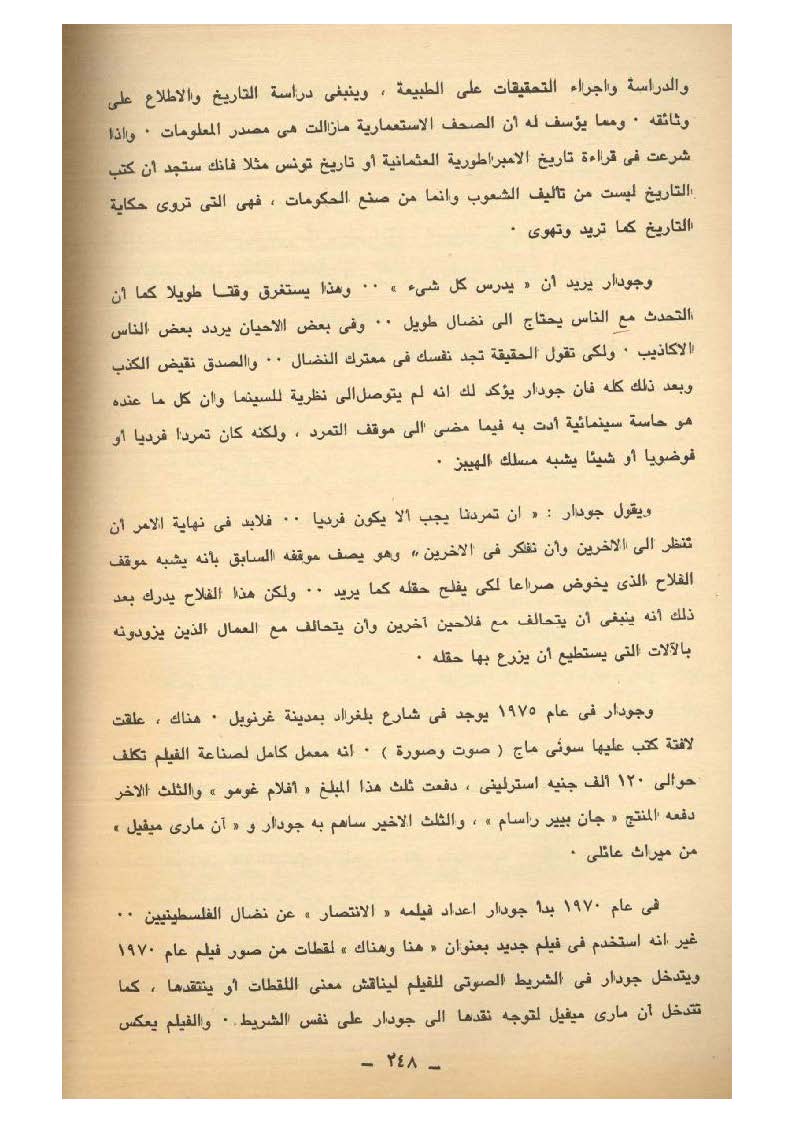 والدراسة واجراء التحقيقات على الطبيعة ، وينبغى دراسة التاريخ والاطلاع على
وثائقه ٠ ومما يؤسف له أن الصحف الاستعمارية مازالت هى مصدر المعلومات ٠ واذا
شرعت فى قراءة تاريخ الامبراطورية العثمانية أو تاريخ تونس مثلا فانك ستجد أن كتب
التاريخ ليست من تأليف الشعوب وانما من صنع الحكومات ، فهى التى تروى حكاية
التاريخ كما تريد وتهوى ٠
وجودار يريد أن « يدرس كل شىء » ٠٠ وهذا يستغرق وقتا طويلا كما أن
التحدث مع الناس يحتاج الى نضال طويل ٠٠ وفى بعض الاحيان يردد بعض الناس
الاكاذيب ٠ ولكى تقول الحقيقة تجد نفسك فى معترك النضال ٠٠ والصدق نقيض الكذب
وبعد ذلك كله فان جودار يؤكد لك انه لم يتوصل الى نظرية للسينما وان كل ما عنده
هو حاسة سينمائية أدت به فيما مضى الى موقف التمرد ، ولكنه كان تمردا فرديا أو
فوضويا أو شيئا يشبه مسلك الهيبز ٠
ويقول جودار : « ان تمردنا يجب ألا يكون فرديا ٠٠ فلابد فى نهاية الامر أن
ننظر الى الاخرين وأن نفكر فى الاخرين» وهو يصف موقفه السابق بأنه يشبه موقف
الفلاح الذى يخوض صراعا لكى يفلح حقله كما يريد ٠٠ ولكن هذا الفلاح يدرك بعد
ذلك أنه ينبغى أن يتحالف مع فلاحين آخرين وأن يتحالف مع العمال الذين يزودونه
بالآلات التى يستطيع أن يزرع بها حقله ٠
وجودار فى عام ١٩٧٥ يوجد فى شارع بلغراد بمدينة غرنوبل ٠ هناك ، علقت
لافتة كتب عليها سوئى ماج ( صوت وصورة ) ٠ انه معمل كامل لصناعة الفيلم تكلف
حوالى ١٢٠ ألف جنيه استرلينى ، دفعت ثلث هذا المبلغ « أفلام غومو » والثلث الاخر
دفعه المنتج « جان بيير راسام » ، والثلث الاخير ساهم به جودار و « آن مارى ميفيل »
من ميراث عائلى ٠
فى عام ١٩٧٠ بدأ جودار اعداد فيلمه « الانتصار » عن نضال الفلسطينيين ٠٠
غير انه استخدم فى فيلم جديد بعنوان « هنا وهناك » لقطات من صور فيلم عام ١٩٧٠
ويتدخل جودار فى الشريط الصوتى للفيلم ليناقش معنى اللقطات أو ينتقدها ، كما
تتدخل آن مارى ميفيل لتوجه نقدها الى جودار على نفس الشريط ٠ والفيلم يعكس
— ٢٤٨ —